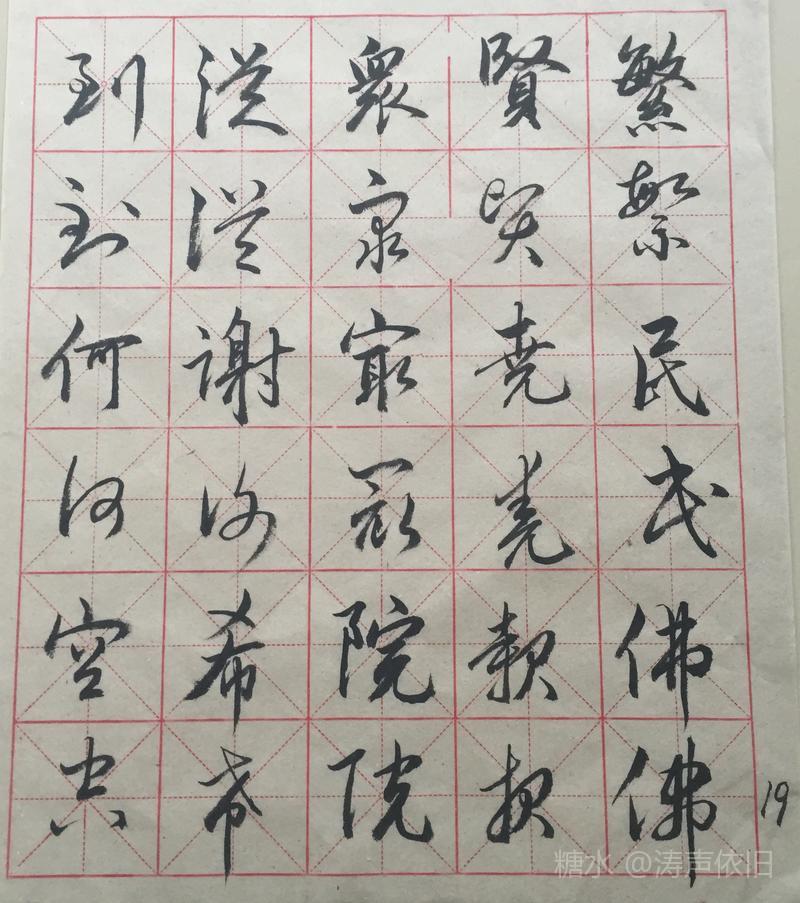 繁繁民民佛佛
賢賢堯堯
衆衆最最院院
從從謝謝希希
到到何何空空
19
糖水 @涛声依旧